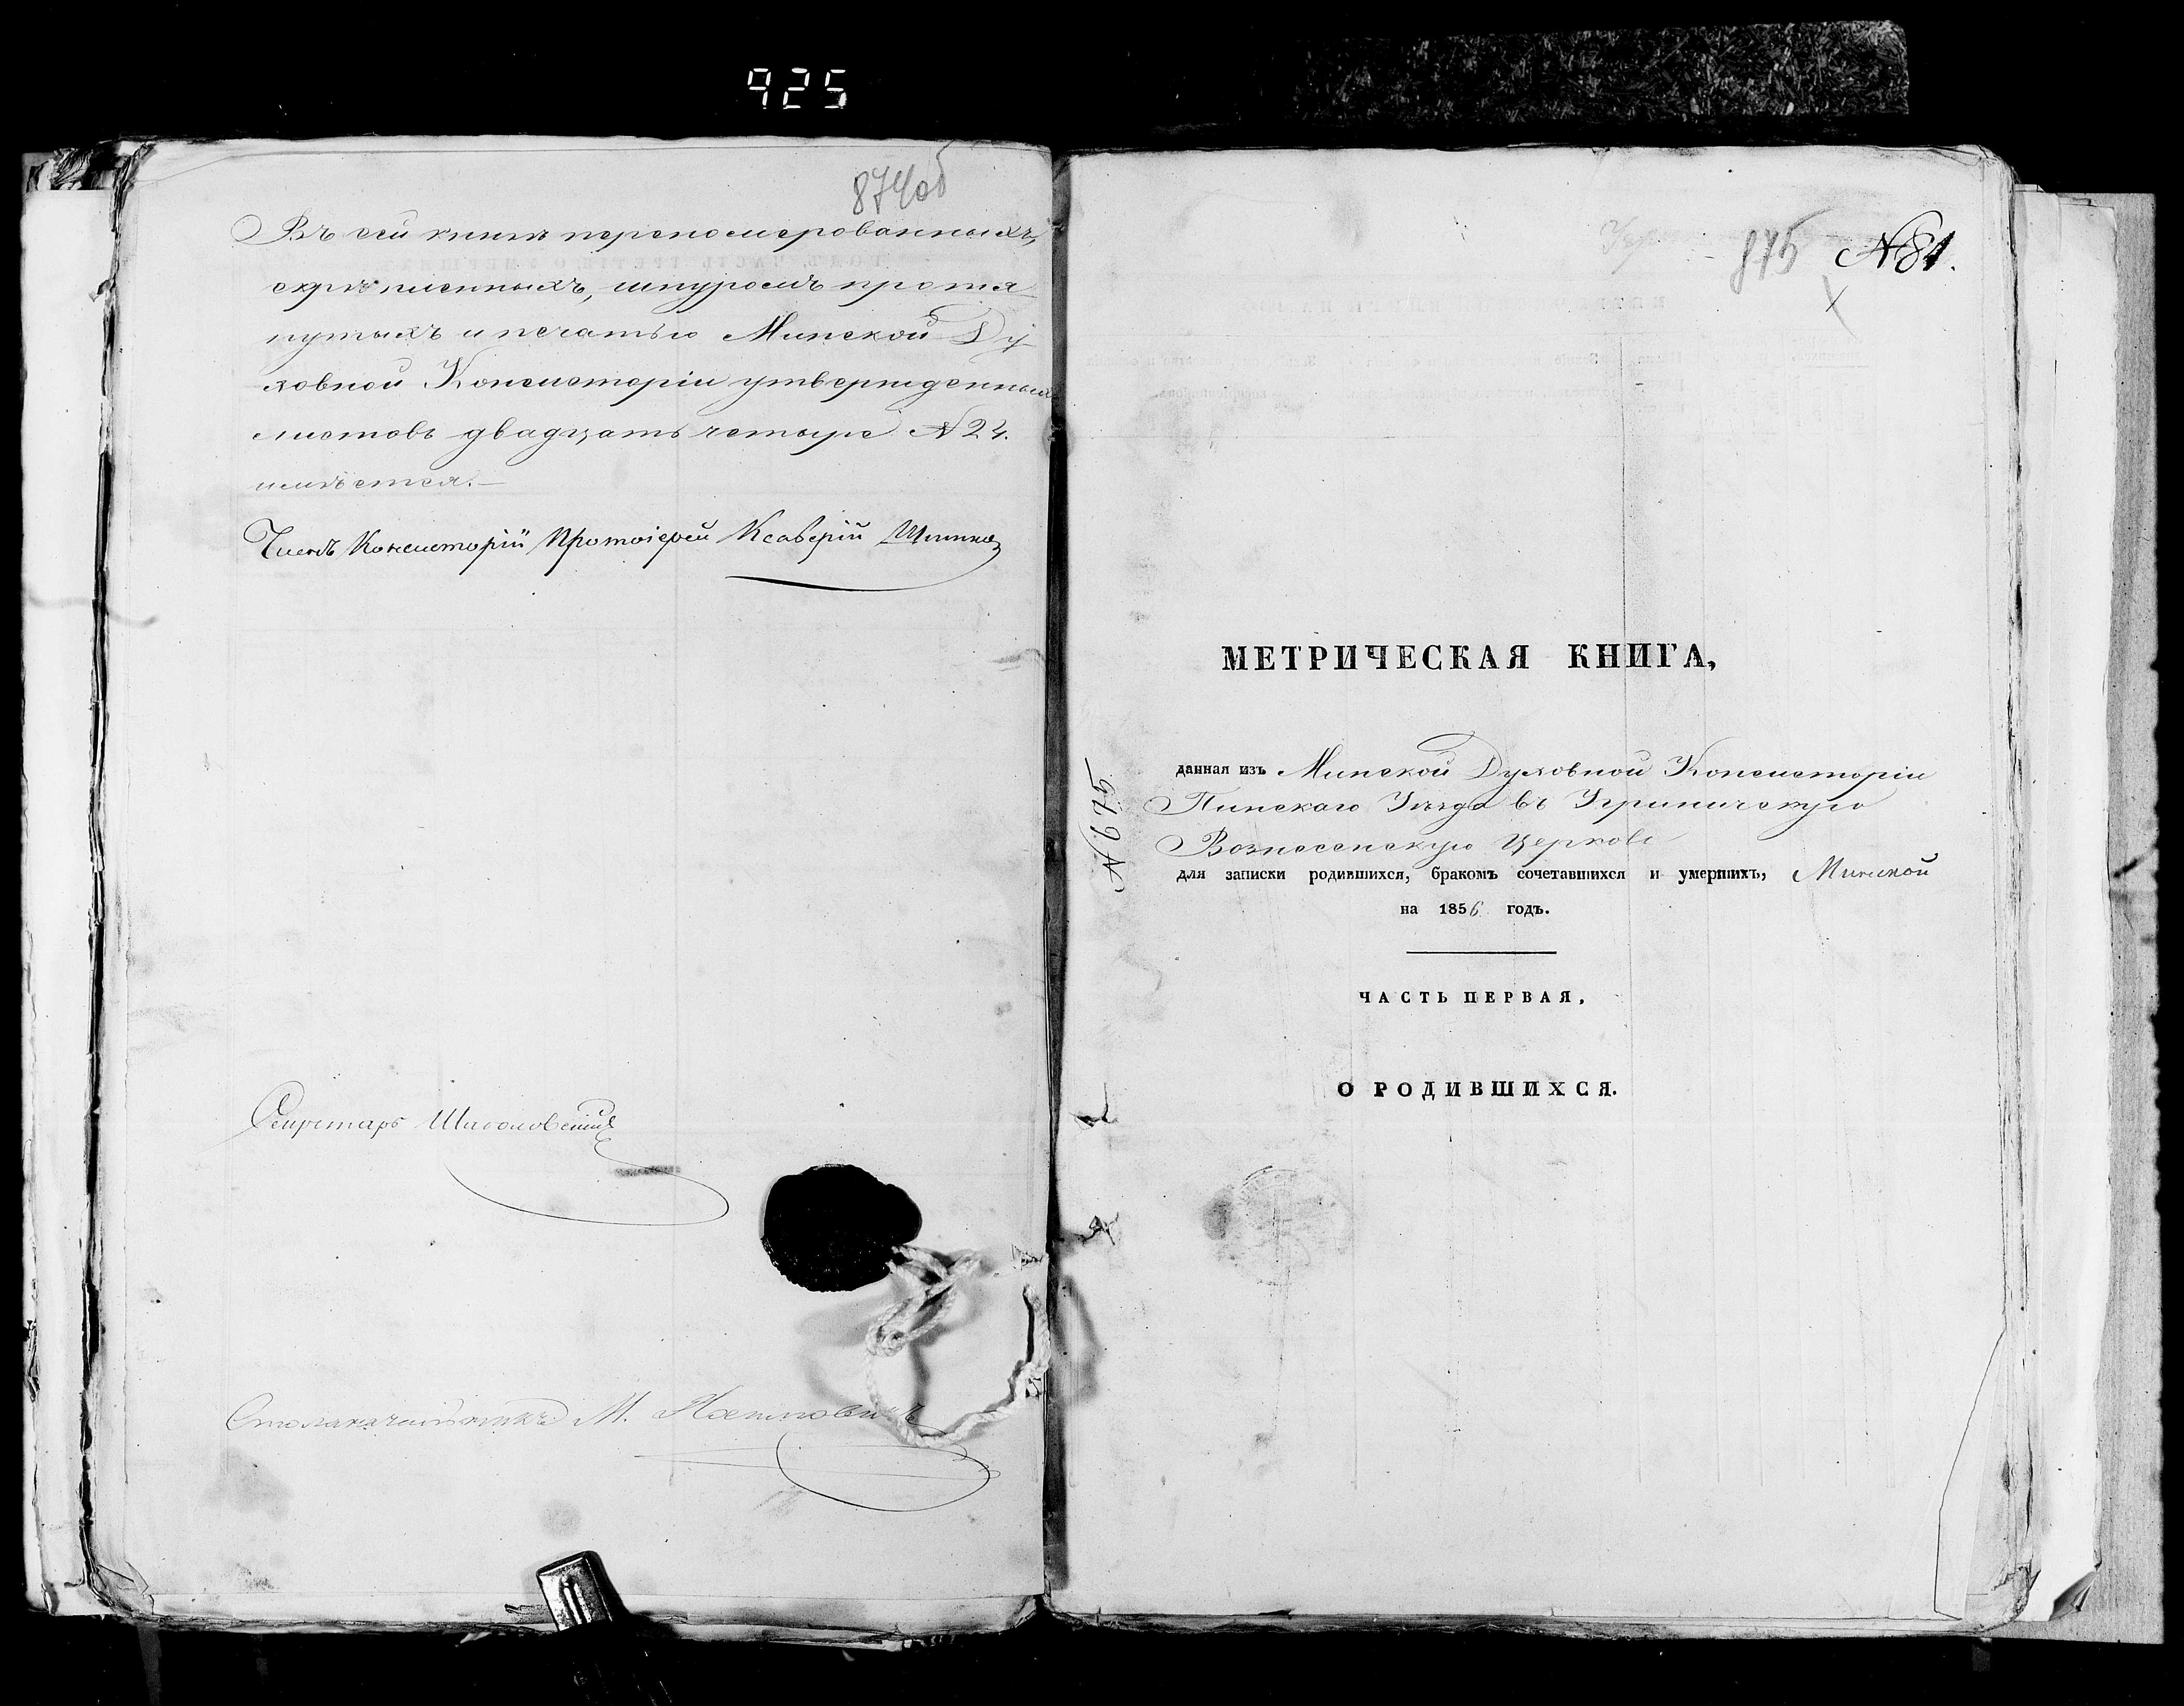 925
874об
Въ сей книгѣ переномерованныхъ,
скрѣпленныхъ, шнуромъ протя
нутыхъ и печатью Минской Ду
ховной Консисторіи утвержденныхъ
листовъ двадцать четыре N 24.
имѣется.—
Членъ Консисторіи Протоіерей Ксаверій
Секретарь
Столоначальникъ М.
875 N 81.
МЕТРИЧЕСКАЯ КНИГА,
данная изъ Минской Духовной Консисторіи
Пинскаго Уѣзда въ Угриничскую
Вознесенскую Церковь
для записки родившихся, бракомъ сочетавшихся и умершихъ, Минской
на 1856 годъ.
ЧАСТЬ ПЕРВАЯ,
О РОДИВШИХСЯ.
N 675